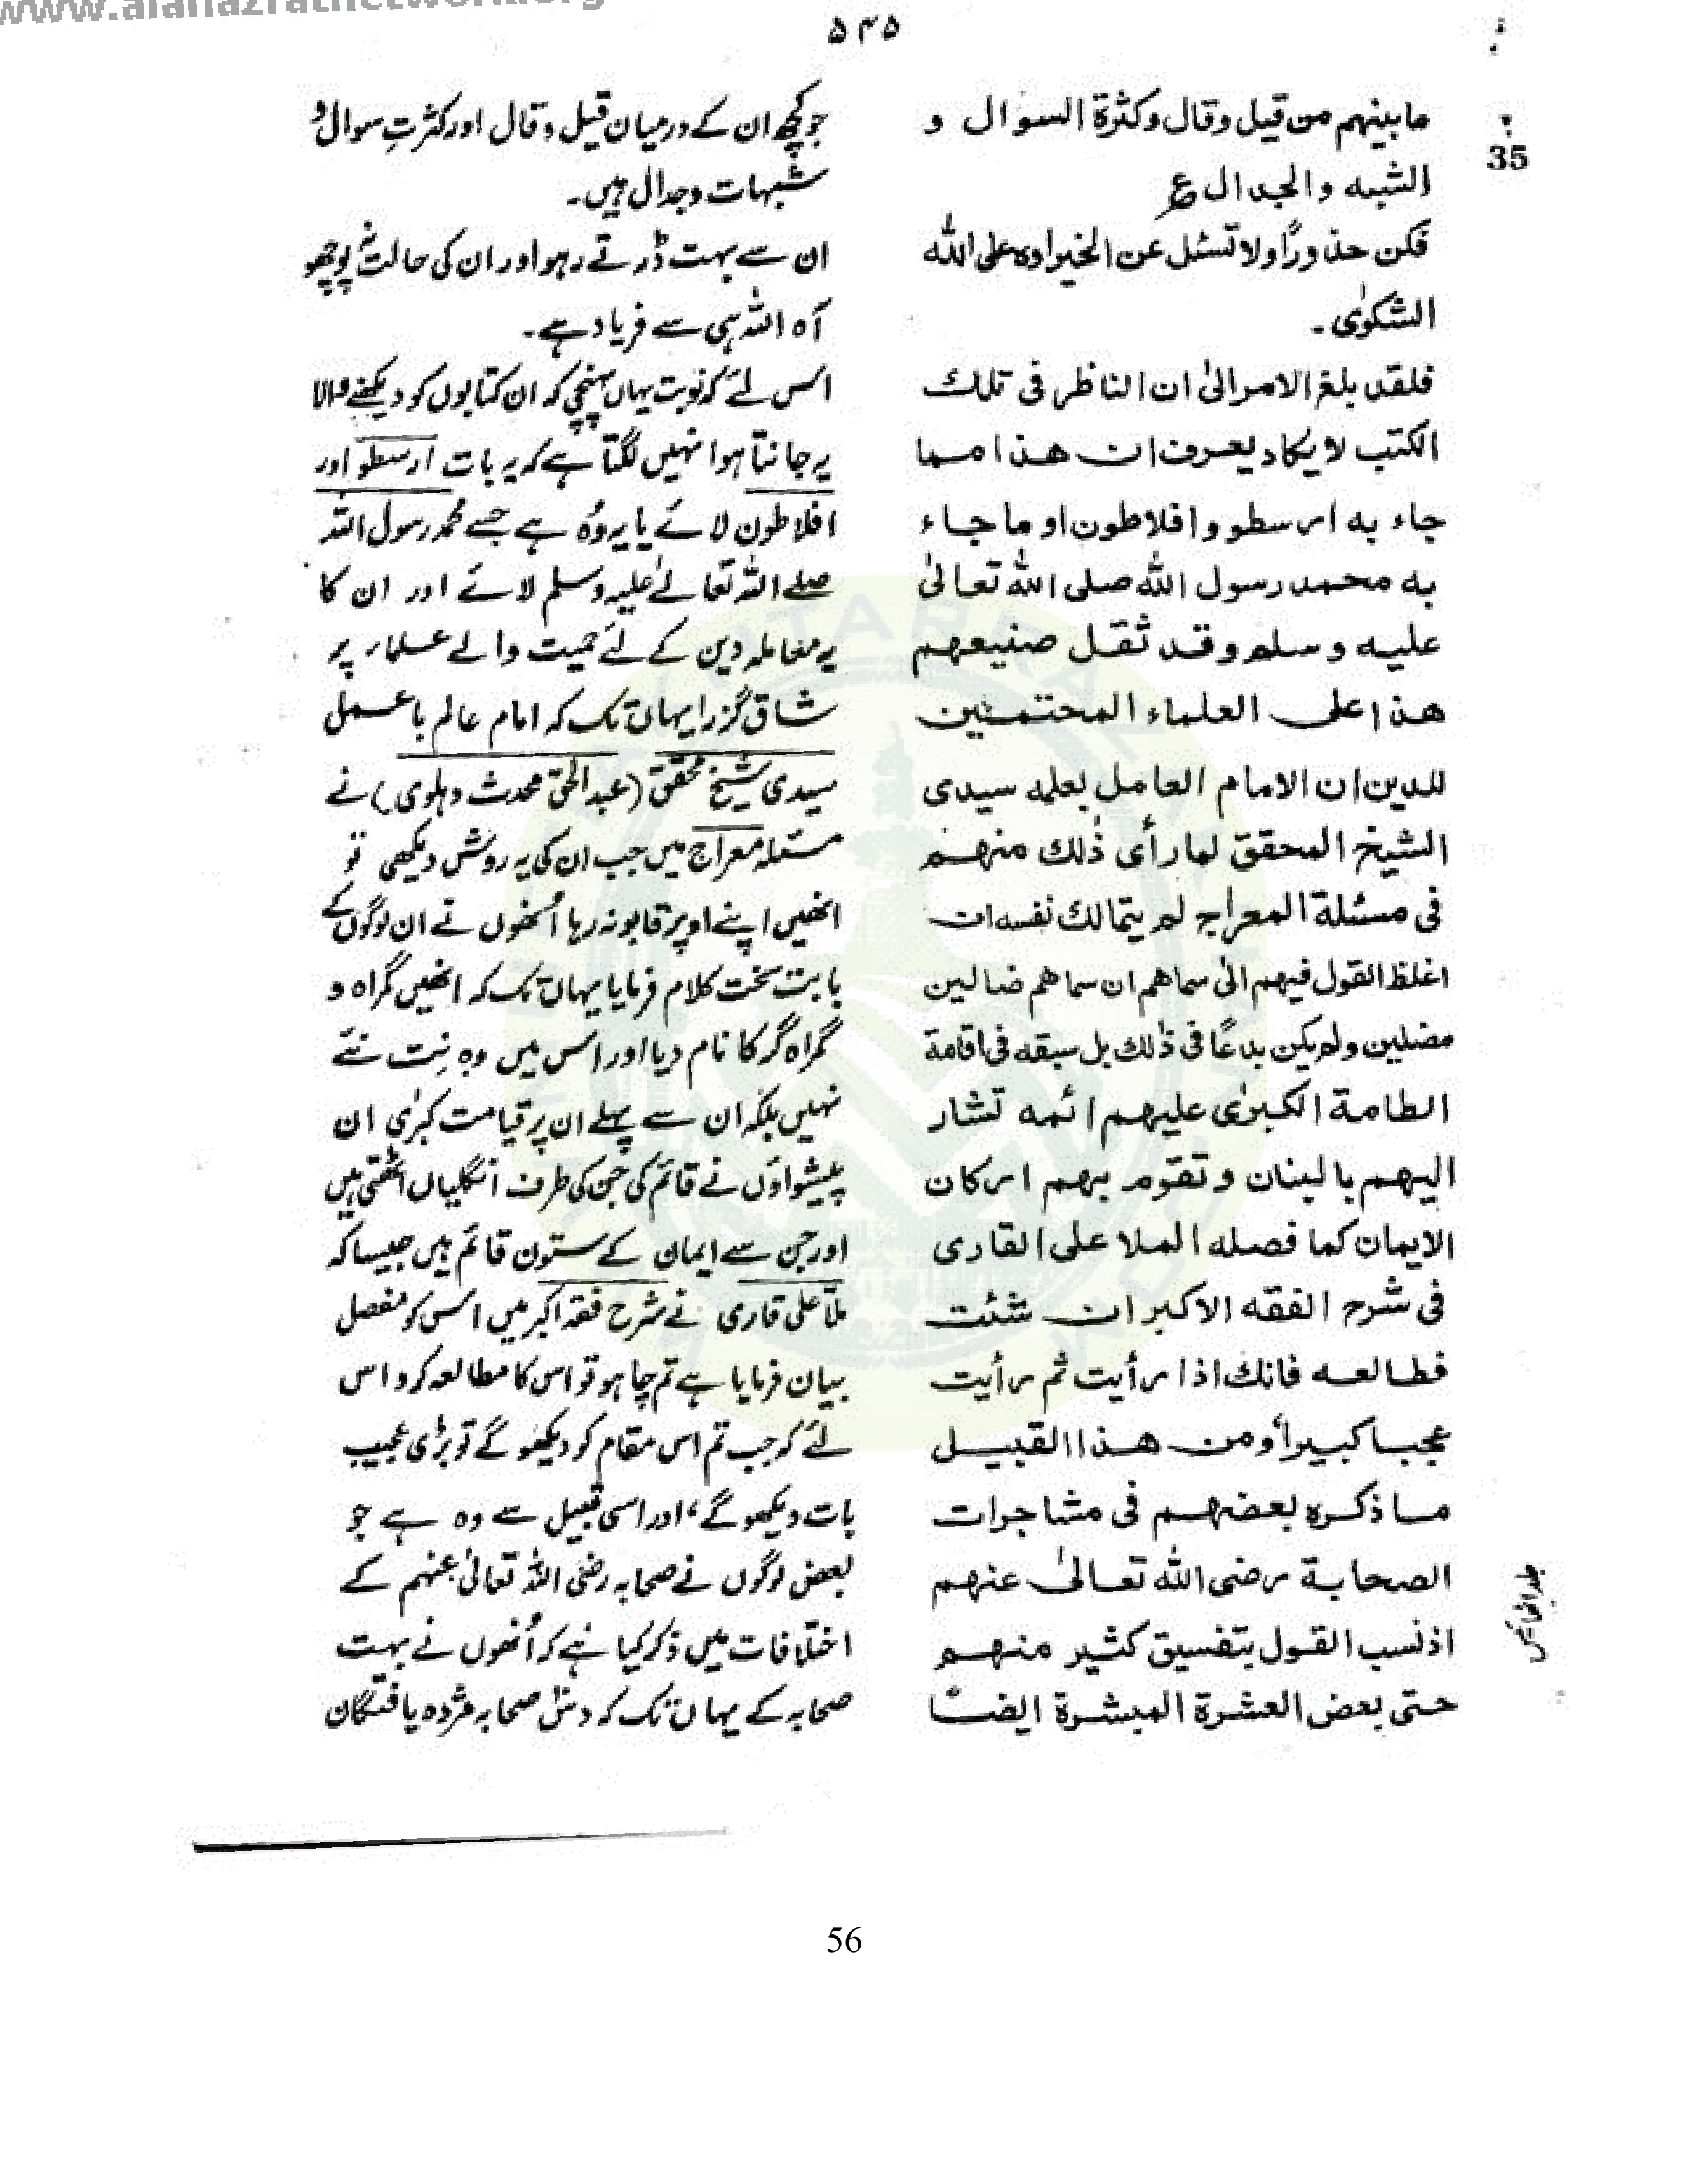 www.alahazratnetwork.org
۵۴۵
مابینہم من قیل وقال وکثرۃ السوال و
الشبہ والجدال ع
فکن حذورًا ولا تسئل عن الخیر اوہ علی اللہ
الشکوٰی۔
فلقد بلغ الامر الیٰ ان الناظر فی تلك
الکتب لا یکاد یعرف ان ھذا مما
جاء بہ ارسطو وافلاطون او ما جاء
بہ محمد رسول اللہ صلی اللہ تعالیٰ
علیہ وسلم وقد ثقل صنیعھم
ھذا علی العلماء المحتمین
للدین ان الامام العامل بعلمہ سیدی
الشیخ المحقق لما رأی ذٰلك منھم
فی مسئلۃ المعراج لم یتمالك نفسہ ان
اغلظ القول فیھم الیٰ سماھم ان سماھم ضالین
مضلین ولم یکن بدعًا فی ذٰلك بل سبقہ فی اقامۃ
الطامۃ الکبرٰی علیھم ائمہ تشار
الیھم بالبنان وتقوم بھم ارکان
الایمان کما فصلہ الملا علی القاری
فی شرح الفقہ الاکبر ان شئت
فطالعہ فانك اذا رأیت ثم رأیت
عجبا کبیرا ومن ھذا القبیل
ما ذکرہ بعضھم فی مشاجرات
الصحابۃ رضی اللہ تعالیٰ عنھم
اذ نسب القول بتفسیق کثیر منھم
حتی بعض العشرۃ المبشرۃ ایضًا
جو کچھ ان کے درمیان قیل وقال اور کثرتِ سوال و
شبہات وجدال ہیں۔
ان سے بہت ڈرتے رہو اور ان کی حالت نہ پوچھو
آہ اللہ ہی سے فریاد ہے۔
اس لئے کہ نوبت یہاں پہنچی کہ ان کتابوں کو دیکھنے والا
یہ جانتا ہوا نہیں لگتا ہے کہ یہ بات ارسطو اور
افلاطون لائے یا یہ وہ ہے جسے محمد رسول اللہ
صلے اللہ تعالےٰ علیہ وسلم لائے اور ان کا
یہ معاملہ دین کے لئے حمیت والے علماء پر
شاق گزرا یہاں تک کہ امام عالم باعمل
سیدی شیخ محقق (عبدالحق محدث دہلوی) نے
مسئلہ معراج میں جب ان کی یہ روش دیکھی تو
انھیں اپنے اوپر قابو نہ رہا اُنھوں نے ان لوگوں کے
بابت سخت کلام فرمایا یہاں تک کہ انھیں گمراہ و
گمراہ گر کا نام دیا اور اس میں وہ نِت نئے
نہیں بلکہ ان سے پہلے ان پر قیامت کبرٰی ان
پیشواؤں نے قائم کی جن کی طرف انگلیاں اٹھتی ہیں
اور جن سے ایمان کے ستون قائم ہیں جیسا کہ
ملّا علی قاری نے شرح فقہ اکبر میں اس کو مفصل
بیان فرمایا ہے تم چاہو تو اس کا مطالعہ کرو اس
لئے کہ جب تم اس مقام کو دیکھو گے تو بڑی عجیب
بات دیکھو گے، اور اسی قبیل سے وہ ہے جو
بعض لوگوں نے صحابہ رضی اللہ تعالیٰ عنہم کے
اختلافات میں ذکر کیا ہے کہ اُنھوں نے بہت
صحابہ کے یہاں تک کہ دس صحابہ مژدہ یافتگان
35
جلد اٹھائیس
56